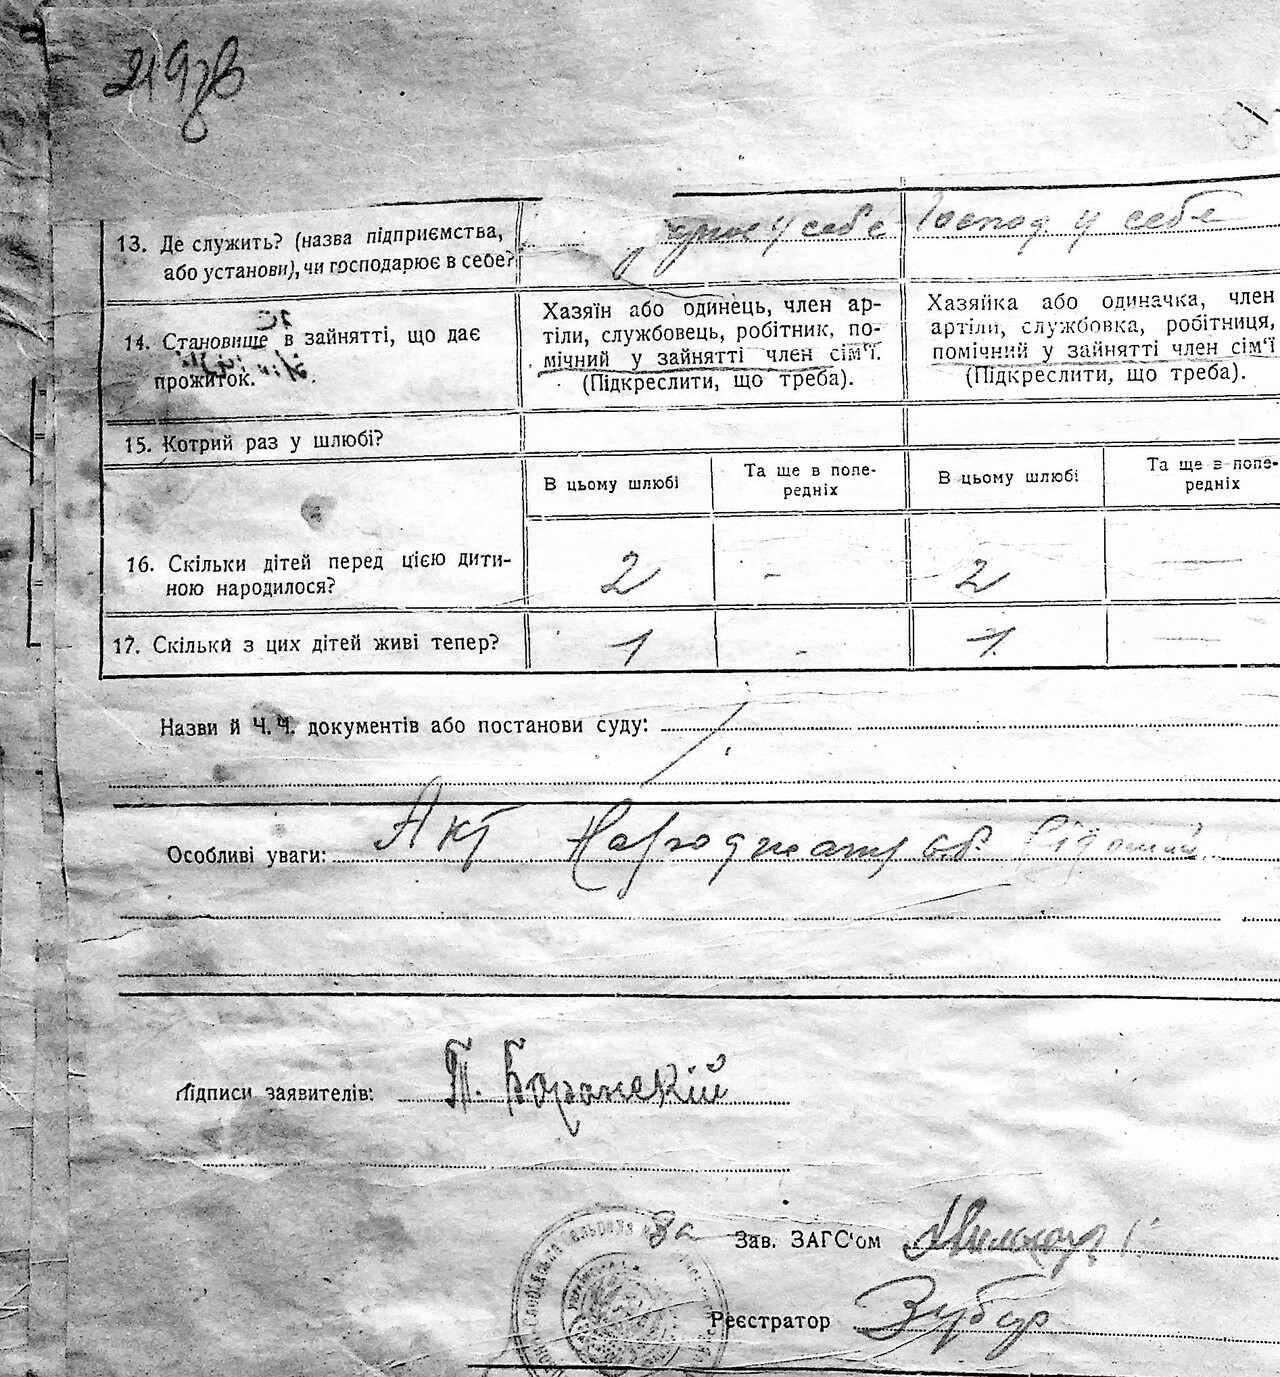 219зв
13. Де служить? (назва підприємства, або установи), чи господарює в себе?
у себе
Господ у себе
14. Становище в зайнятті, що дає прожиток.
Хазяїн або одинець, член ар-
тіли, службовець, робітник, по-
мічний у зайнятті член сім'ї.
(Підкреслити, що треба).
Хазяйка або одиначка, член
артіли, службовка, робітниця,
помічний у зайнятті член сім'ї
(Підкреслити, що треба).
15. Котрий раз у шлюбі?
В цьому шлюбі
Та ще в попе-
редніх
В цьому шлюбі
Та ще в попе-
редніх
16. Скільки дітей перед цією дити-
ною народилося?
2 - 2 —
17. Скільки з цих дітей живі тепер?
1 - 1 —
Назви й Ч.Ч. документів або постанови суду:
Особливі уваги: Акт
Підписи заявителів: Т. Боранскій
За Зав. ЗАГС'ом
Реєстратор Зубар